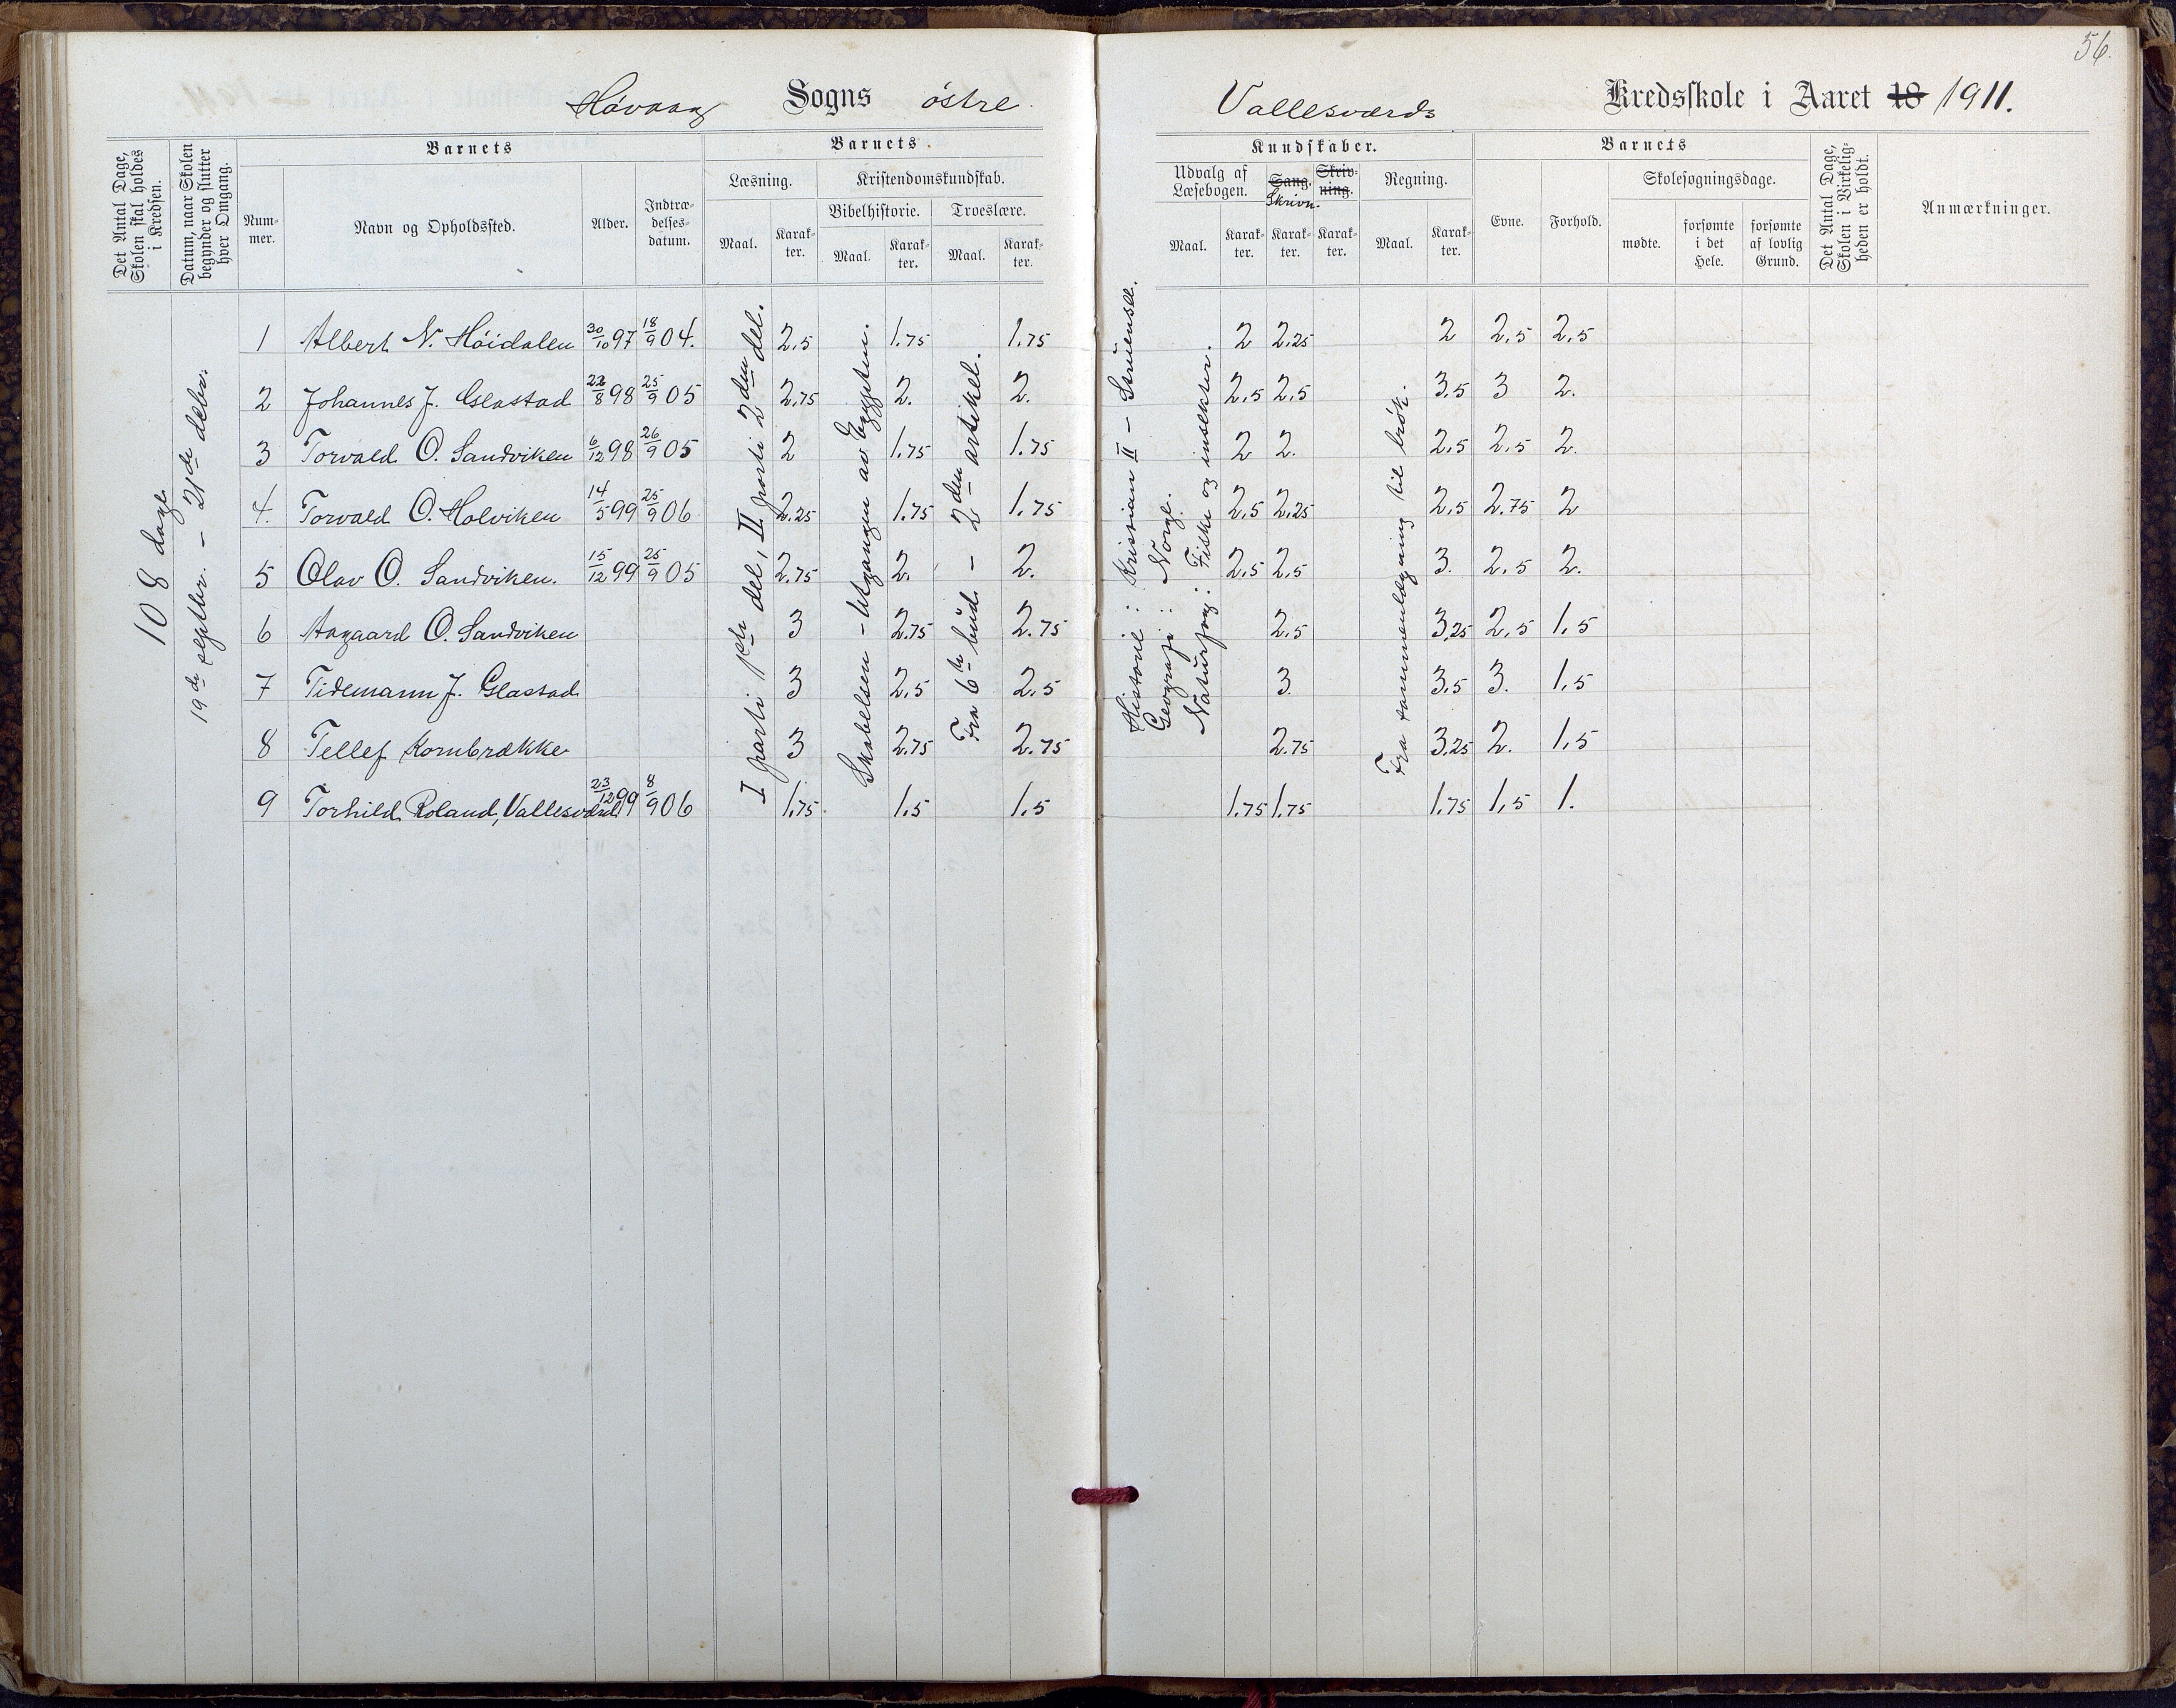 56.
Høvaag Sogns østre Vallesværds Kredsskole i Aaret 18 1911.
Det Antal Dage, Skolen skal holdes i Kredsen.
Datum, naar Skolen begynder og slutter hver Omgang.
Barnets
Nummer.
Navn og Opholdssted.
Alder.
Indtrædelsesdatum.
Barnets
Læsning.
Maal.
Karakter.
Kristendomskundskab.
Bibelhistorie.
Maal.
Karakter.
Troeslære.
Maal.
Karakter.
Kundskaber.
Udvalg af Læsebogen.
Maal.
Karakter.
Sang.
Skrivn.
Karakter.
Skrivning.
Karakter.
Regning.
Maal.
Karakter.
Barnets
Evne.
Forhold.
Skolesøgningsdage.
mødte.
forsømte i det Hele.
forsømte af lovlig Grund.
Det Antal Dage, Skolen i Virkeligheden er holdt.
Anmærkninger.
108 dage
19de septbr. – 21de debr.
I parti 1ste del, II parti 2den del.
Skabelsen – Utgangen av Egypten.
Fra 6te bud – 2den artikel.
Historie: Kristian II – Struensee.
Geografi: Norge.
Naturfag: Fiske og insekter.
Fra sammenlægning til brøk.
1 Albert N. Høidalen 30/10 97 18/9 04. 2,5 1.75 1.75 2 2,25 2 2,5 2,5
2 Johannes J. Glastad 22/8 98 25/9 05 2,75 2. 2. 2,5 2,5 3,5 3 2.
3 Torvald O. Sandviken 6/12 98 26/9 05 2 1.75 1.75 2 2. 2,5 2,5 2.
4. Torvald O. Holviken 14/5 99 25/9 06 2.25 1.75 1.75 2,5 2,25 2,5 2.75 2
5 Olav O. Sandviken. 15/12 99 25/9 05 2,75 2. 2. 2,5 2,5 3. 2,5 2.
6 Aagaard O. Sandviken 3 2.75 2.75 2,5 3,25 2,5 1,5
7 Tidemann J. Glastad 3 2,5 2,5 3. 3,5 3. 1,5
8 Tellef Kornbrække 3 2.75 2.75 2.75 3,25 2. 1,5
9 Torhild Roland, Vallesværd 23/12 99 8/9 06 1,75. 1.5 1.5 1.75 1.75 1.75 1,5 1.